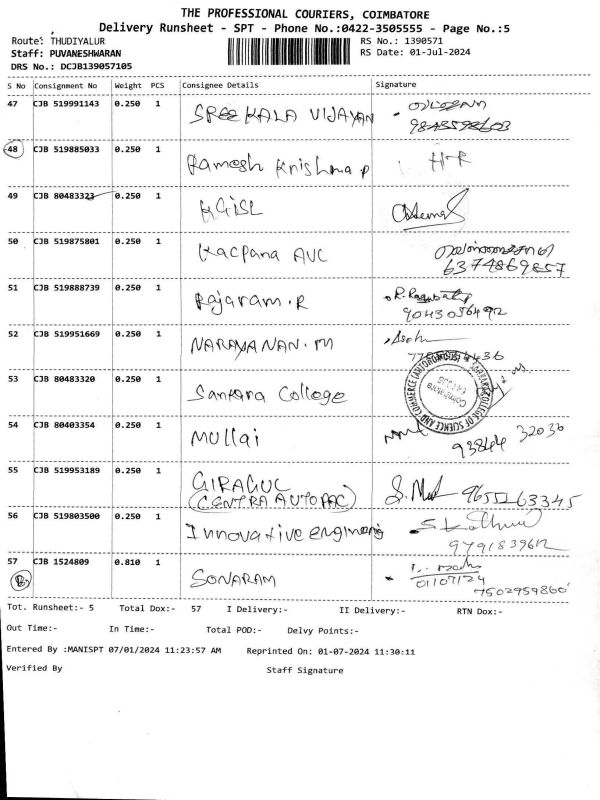 THE PROFESSIONAL COURIERS, COIMBATORE
Delivery Runsheet - SPT - Phone No.:0422-3505555 - Page No.:5
Route: THUDIYALUR RS No.: 1390571
Staff: PUVANESHWARAN RS Date: 01-Jul-2024
DRS No.: DCJB139057105
S No Consignment No Weight PCS Consignee Details Signature
47 CJB 519991143 0.250 1 SREEKALA VIJAYAN
48 CJB 519885033 0.250 1 Ramesh Krishna P
49 CJB 80483323 0.250 1 KGISL
50 CJB 519875801 0.250 1 Kacpana AVC
6374869857
51 CJB 519888739 0.250 1 Rajaram.R
9043056492
52 CJB 519951669 0.250 1 NARAYANAN.M
53 CJB 80483320 0.250 1 Sankara College
COLLEGE OF SCIENCE AND COMMERCE (AUTONOMOUS)
54 CJB 80403354 0.250 1 Mullai
93844 32036
55 CJB 519953189 0.250 1 GIRAGUC
(CENTRA AUTOPAC) 9655263345
56 CJB 519803500 0.250 1 Innovative engineers
57 CJB 1524809 0.810 1 SONARAM
01107124
7502959860
Tot. Runsheet:- 5 Total Dox:- 57 I Delivery:- II Delivery:- RTN Dox:-
Out Time:- In Time:- Total POD:- Delvy Points:-
Entered By :MANISPT 07/01/2024 11:23:57 AM Reprinted On: 01-07-2024 11:30:11
Verified By Staff Signature